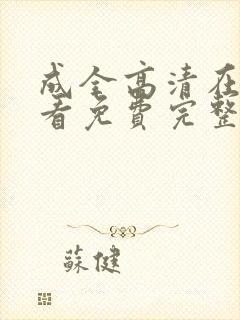 成全高清在
看免费完整
蘇健